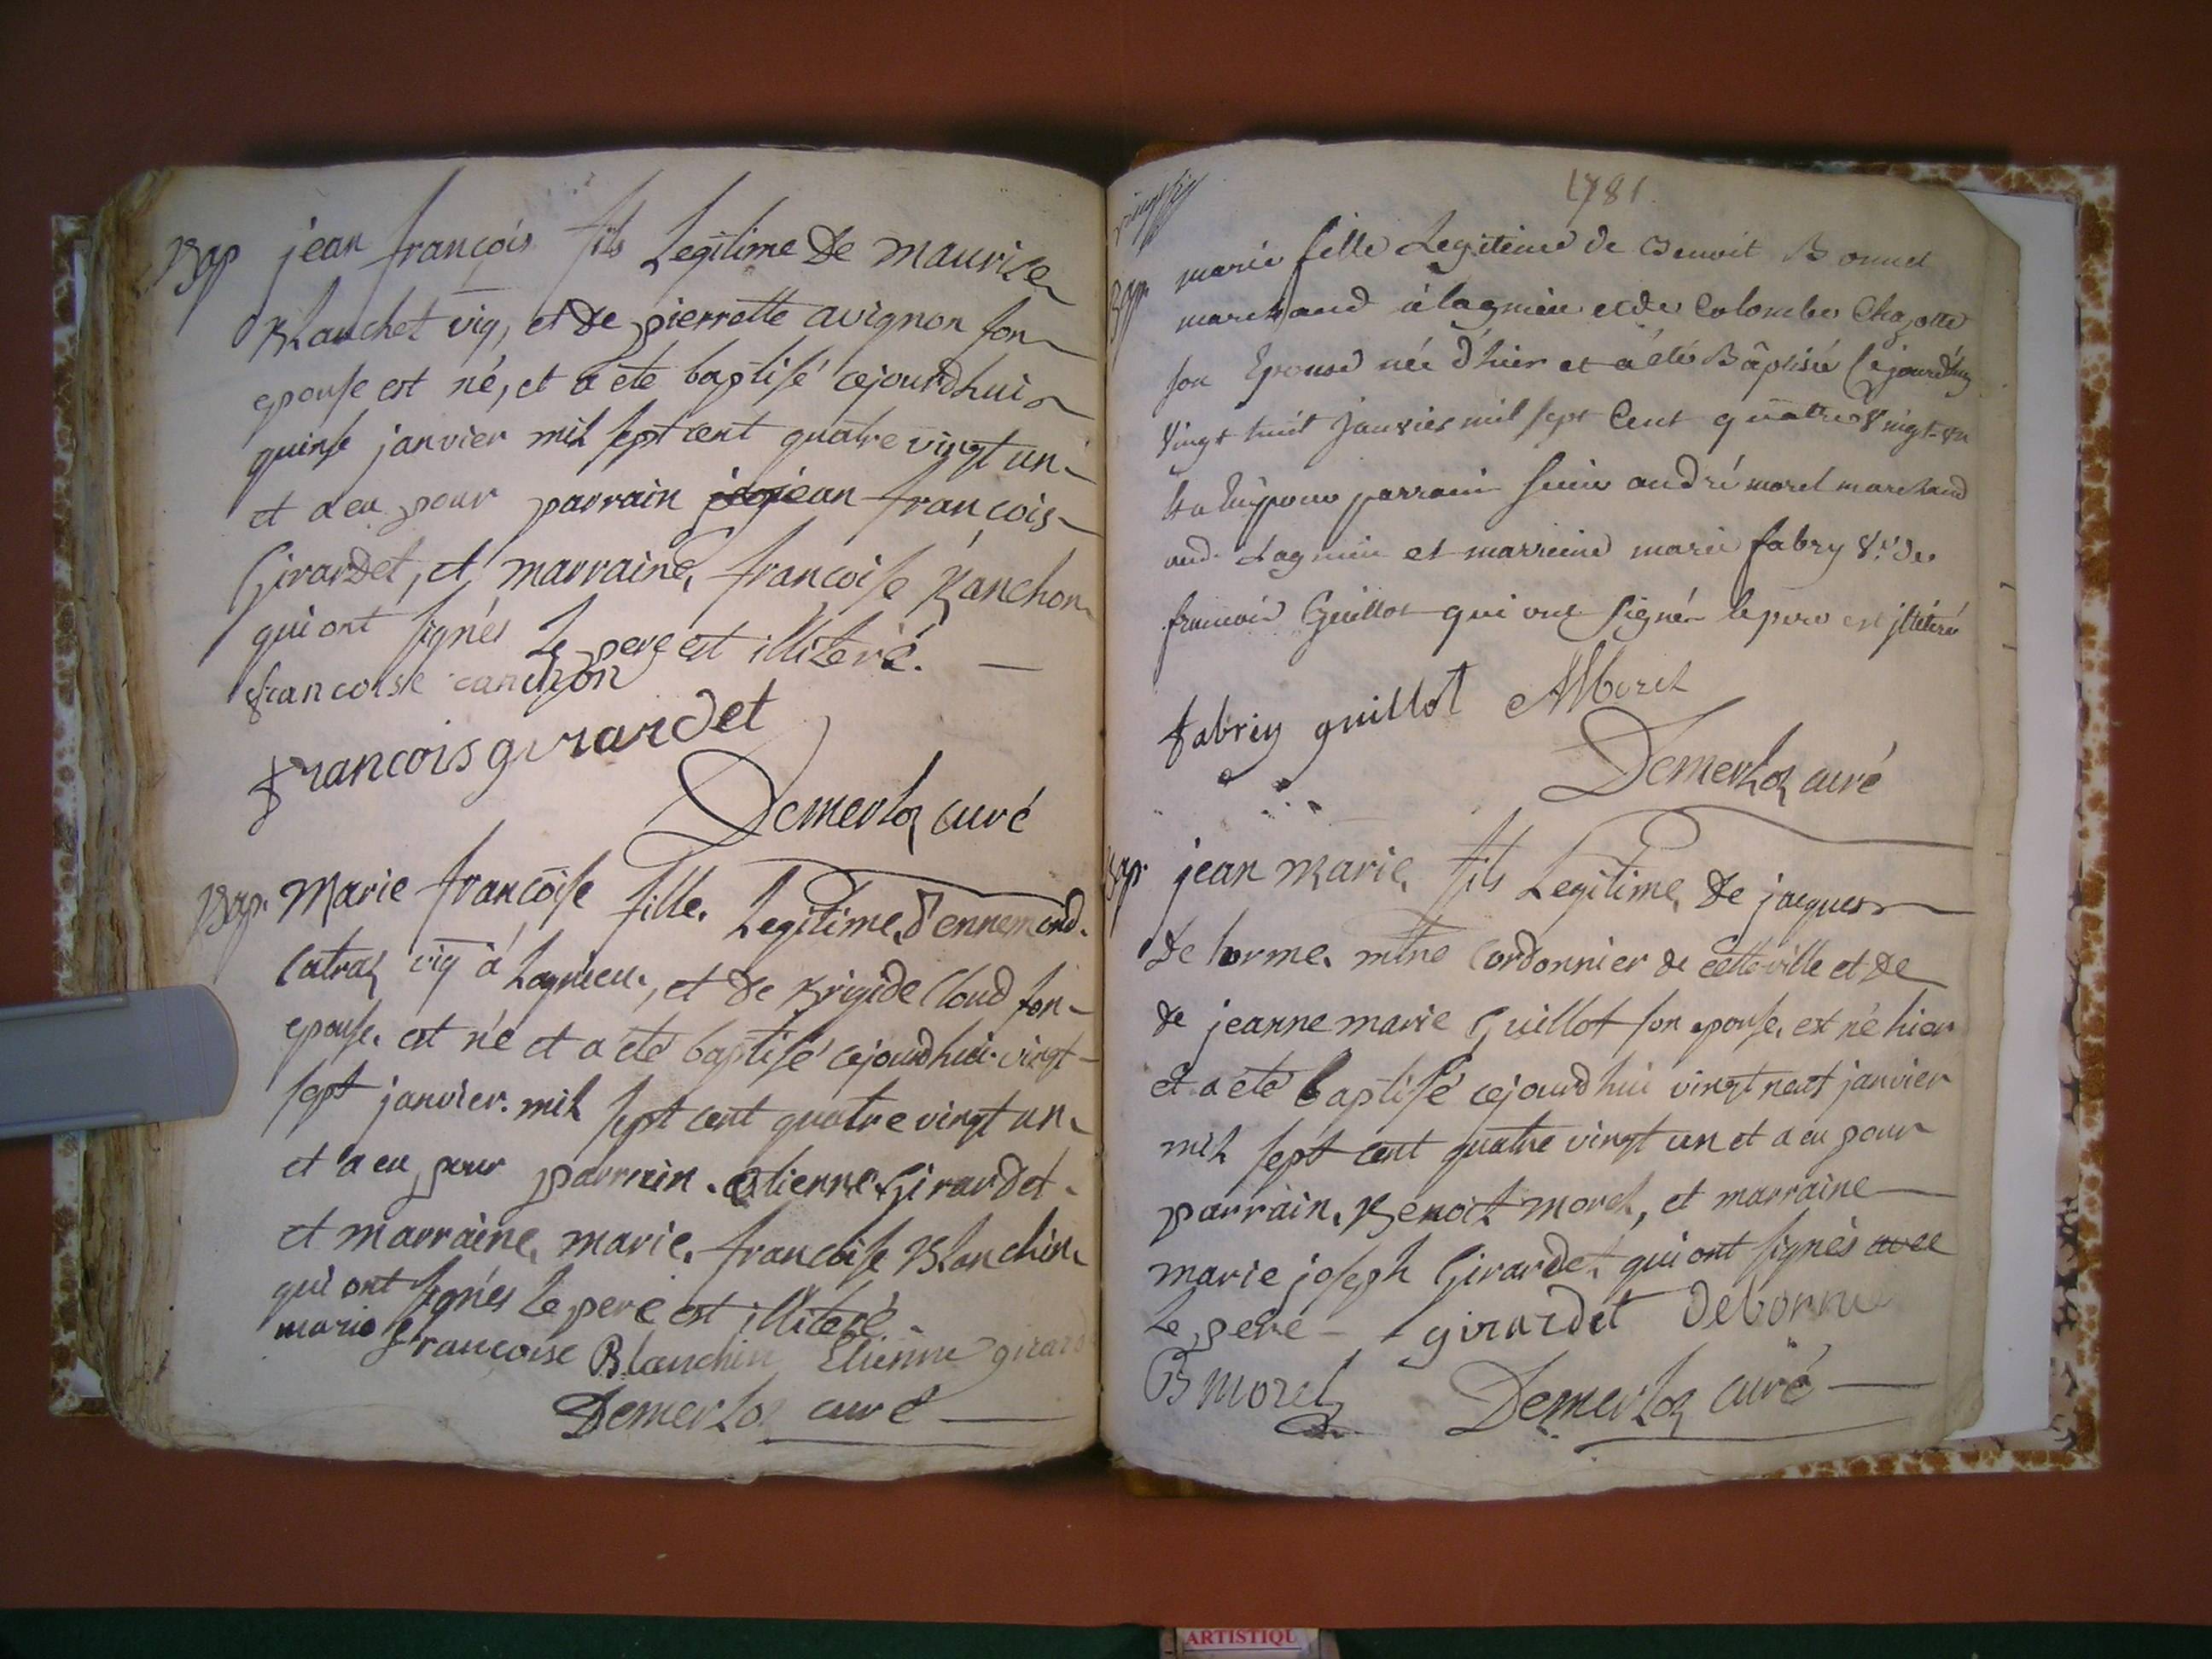 Bap jean françois fils Legitime de maurice
Blanchet vig, et de pierrette avignon son
epouse est né, et a eté baptisé cejourdhui
quinse janvier mil sept cent quatre vingt un
et a eu pour parrain jean françois
Girardet, et marraine, francoise Ranchon
qui ont signés Le pere est illiteré.
francoise ranchon
francois girardet
Demerloz curé
Bap. Marie françoise fille Legitime d'ennemond
Catraz vig a Lagnieu, et de Brigide Cloud son
epouse, est né et a eté baptisé cejourdhui vingt
sept janvier mil sept cent quatre vingt un
et a eu pour parrain etienne Girardet
et marraine, marie francoise Blanchin
qui ont signés Le pere est illiteré
marie françoise Blanchin Etienne girard
Demerloz curé
1781.
Bap. marie fille Legitime de Benoit Bonnet
marchand à lagnieu et de Colombe Chazotte
son Epouse née d'hier et a été Baptisée Cejourd'huy
Vingt huit Janvier mil sept Cent quatre Vingt un
pour parrain sieur andré morel marchand
aud. Lagnieu et marreine marie fabry Ve de
francois Guillot qui ont signés le pere est illiteré
fabry guillot AMorel
Demerloz curé
Bap. jean Marie, fils Legitime, de jacques
de lorme, mtre Cordonnier de cette ville et de
de jeanne marie Guillot son epouse, est né hier
et a eté baptisé cejourdhui vingt neuf janvier
mil sept cent quatre vingt un et a eu pour
parrain, Benoit morel, et marraine
marie joseph Girardet qui ont signés avec
Le pere - girardet Delorme
B morel Demerloz curé